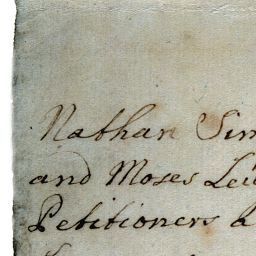 Nathan Sim
and Moses Lev
Petitioners